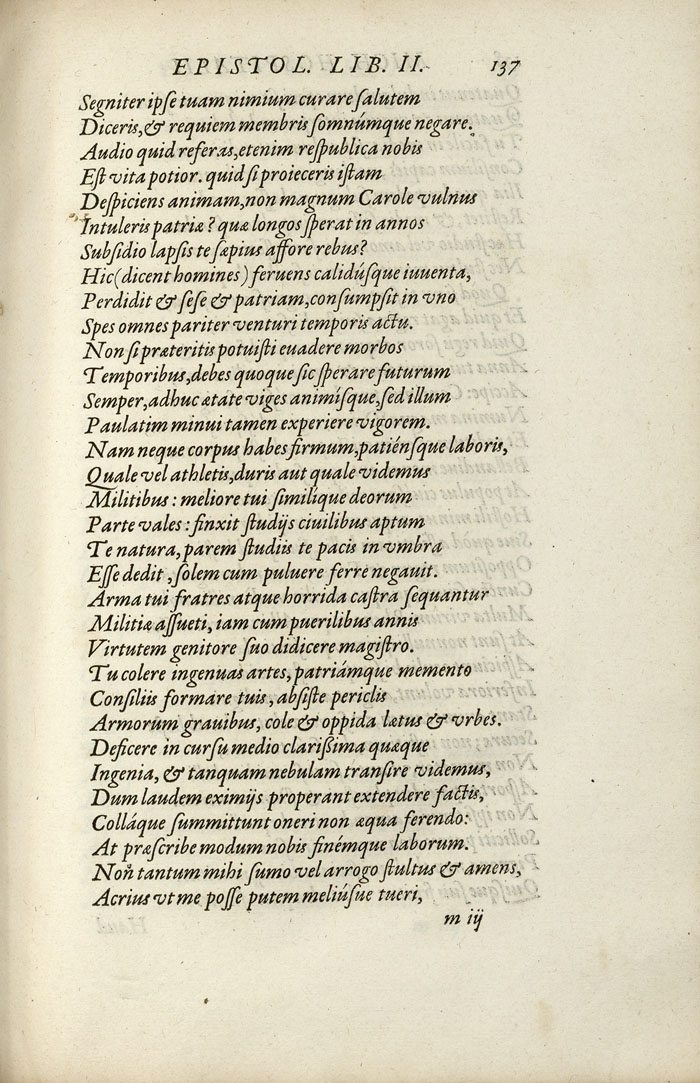 EPISTOL. LIB. II. 137
Segniter ipſe tuam nimium curare ſalutem
Diceris,& requiem membris ſomnúmque negare.
Audio quid referas,etenim reſpublica nobis
Eſt vita potior. quid ſi proieceris iſtam
Deſpiciens animam,non magnum Carole vulnus
Intuleris patriæ? quæ longos ſperat in annos
Subſidio lapſis te ſæpius affore rebus?
Hic(dicent homines) feruens calidúſque iuuenta,
Perdidit & ſeſe & patriam,conſumpſit in vno
Spes omnes pariter venturi temporis actu.
Non ſi præteritis potuiſti euadere morbos
Temporibus,debes quoque ſic ſperare futurum
Semper,adhuc ætate viges animíſque,ſed illum
Paulatim minui tamen experiere vigorem.
Nam neque corpus habes firmum,patiénſque laboris,
Quale vel athletis,duris aut quale videmus
Militibus: meliore tui ſimilíque deorum
Parte vales: finxit ſtudijs ciuilibus aptum
Te natura, parem ſtudiis te pacis in vmbra
Eſſe dedit, ſolem cum puluere ferre negauit.
Arma tui fratres atque horrida caſtra ſequantur
Militiæ aſſueti, iam cum puerilibus annis
Virtutem genitore ſuo didicere magiſtro.
Tu colere ingenuas artes, patriámque memento
Conſiliis formare tuis, abſiſte periclis
Armorum grauibus, cole & oppida lætus & vrbes.
Deficere in curſu medio clarißima quæque
Ingenia, & tanquam nebulam tranſire videmus,
Dum laudem eximijs properant extendere factis,
Colláque ſummittunt oneri non æqua ferendo:
At præſcribe modum nobis finémque laborum.
Non tantum mihi ſumo vel arrogo ſtultus & amens,
Acrius vt me poſſe putem meliúſue tueri,
m iij